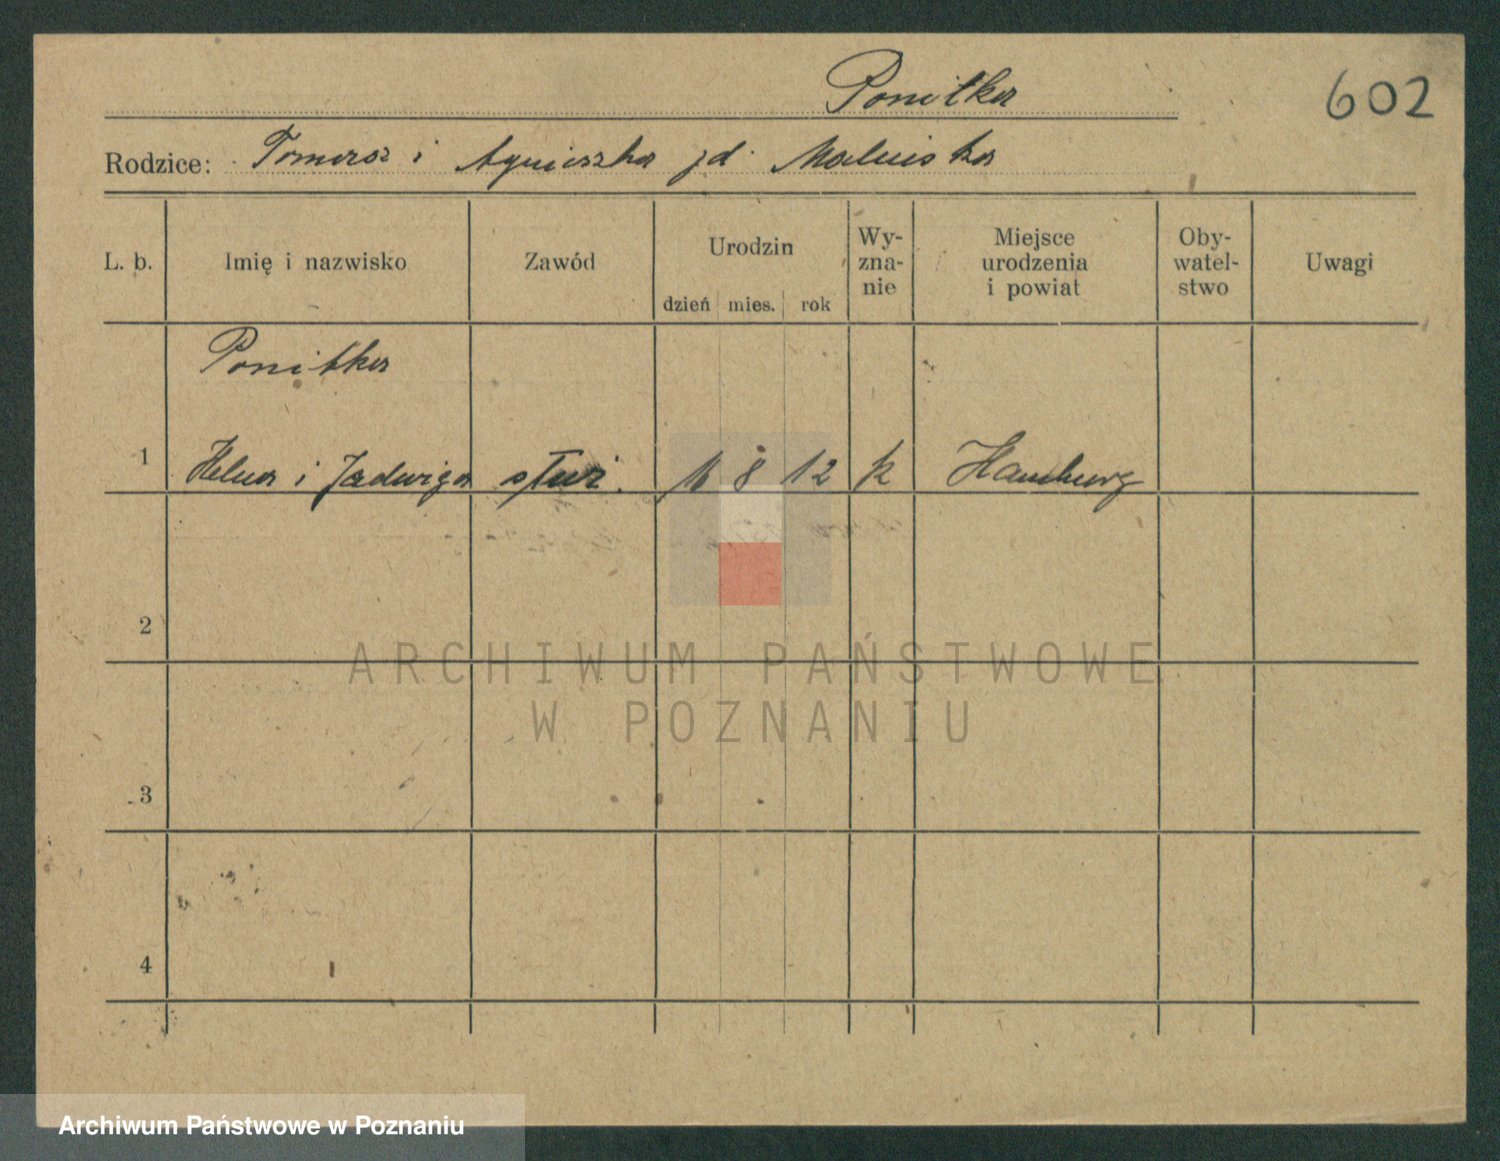 Ponitka
602
Rodzice: Tomasz i Agnieszka jd
L. b. Imię i nazwisko Zawód Urodzin Wy- Miejsce Oby- Uwagi
zna- urodzenia watel-
nie i powiat stwo
dzień mies. rok
Ponitka
1 Helena i Jadwiga służ. 8 12 k Hamburg
2
ARCHIWUM PAŃSTWOWE
W POZNANIU
3
4
Archiwum Państwowe w Poznaniu